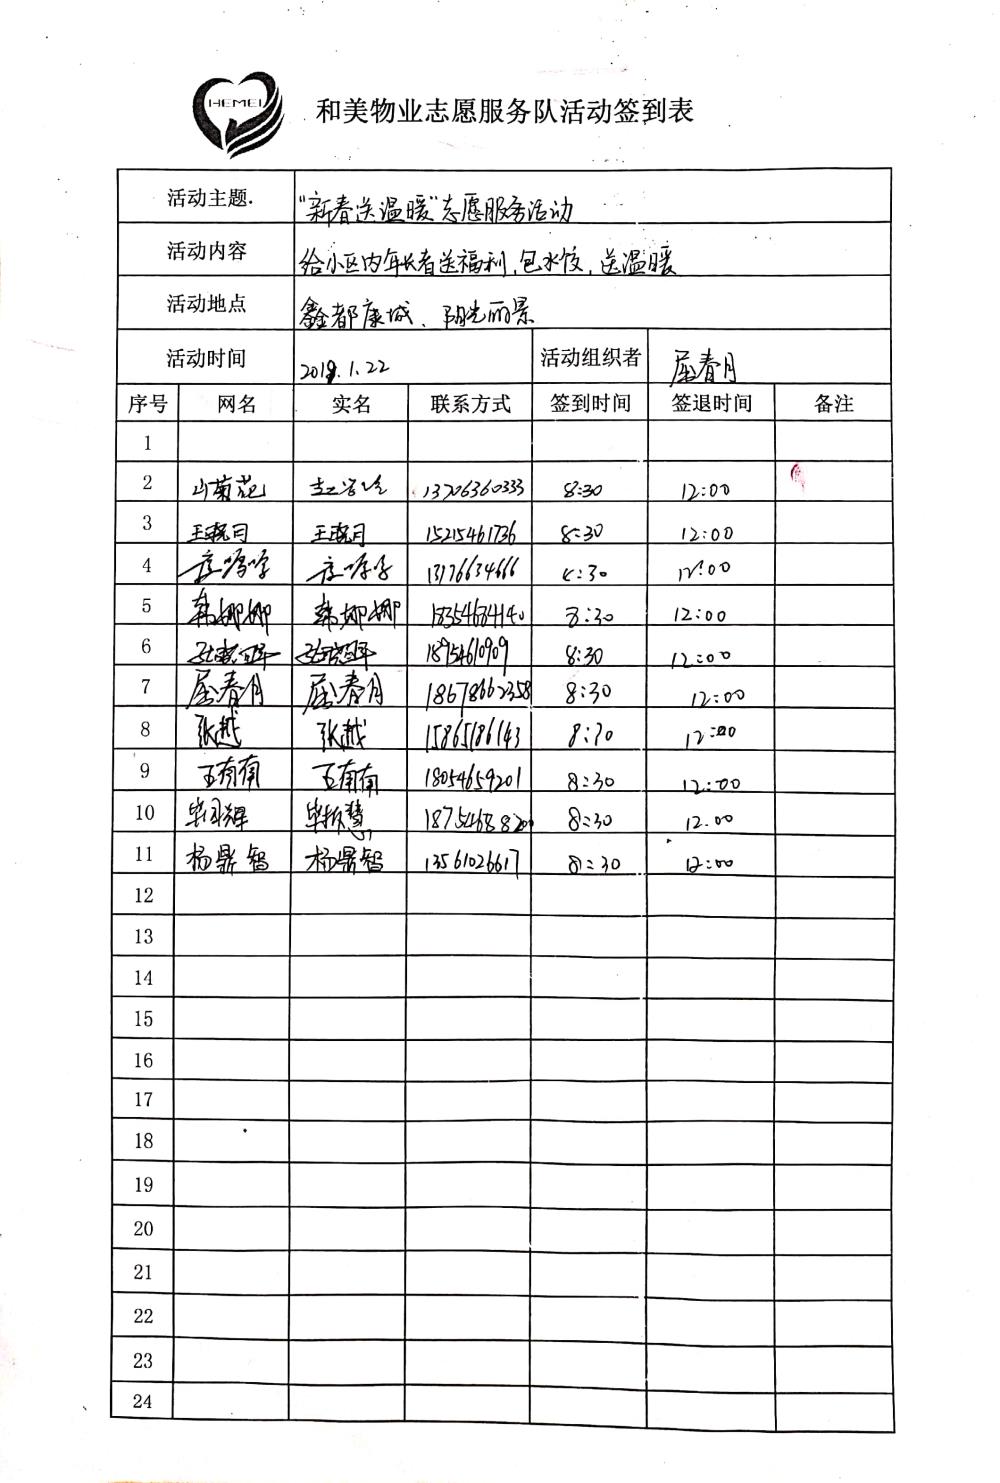 HEMEI
和美物业志愿服务队活动签到表
活动主题. "新春送温暖"志愿服务活动
活动内容 给小区内年长者送福利,包水饺,送温暖
活动地点 鑫都康城、阳光丽景
活动时间 2019.1.22 活动组织者 屈春月
序号 网名 实名 联系方式 签到时间 签退时间 备注
1
2 山菊花 13706360333 8:30 12:00
3 王晓月 王晓月 15215461736 8:30 12:00
4 13176634666 8:30 12:00
5 韩娜娜 韩娜娜 18354684140 8:30 12:00
6 18954610909 8:30 12:00
7 屈春月 屈春月 18678662358 8:30 12:00
8 张越 张越 15865186143 8:30 12:00
9 王有南 王有南 18054659201 8:30 12:00
10 8:30 12.00
11 杨鼎智 杨鼎智 13561026617 8:30 12:00
12
13
14
15
16
17
18
19
20
21
22
23
24